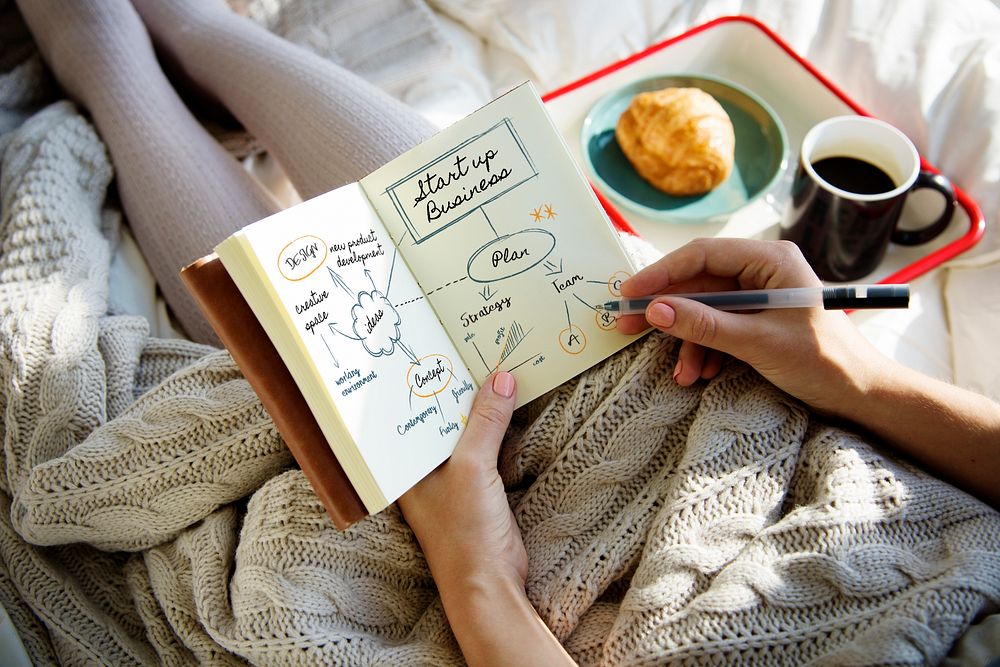 DESIGN
new product
development
creative
space
ideas
working
environment
Concept
Contemporary
friendly
Start up
Business
Plan
Strategy
Team
A
B
C
cost